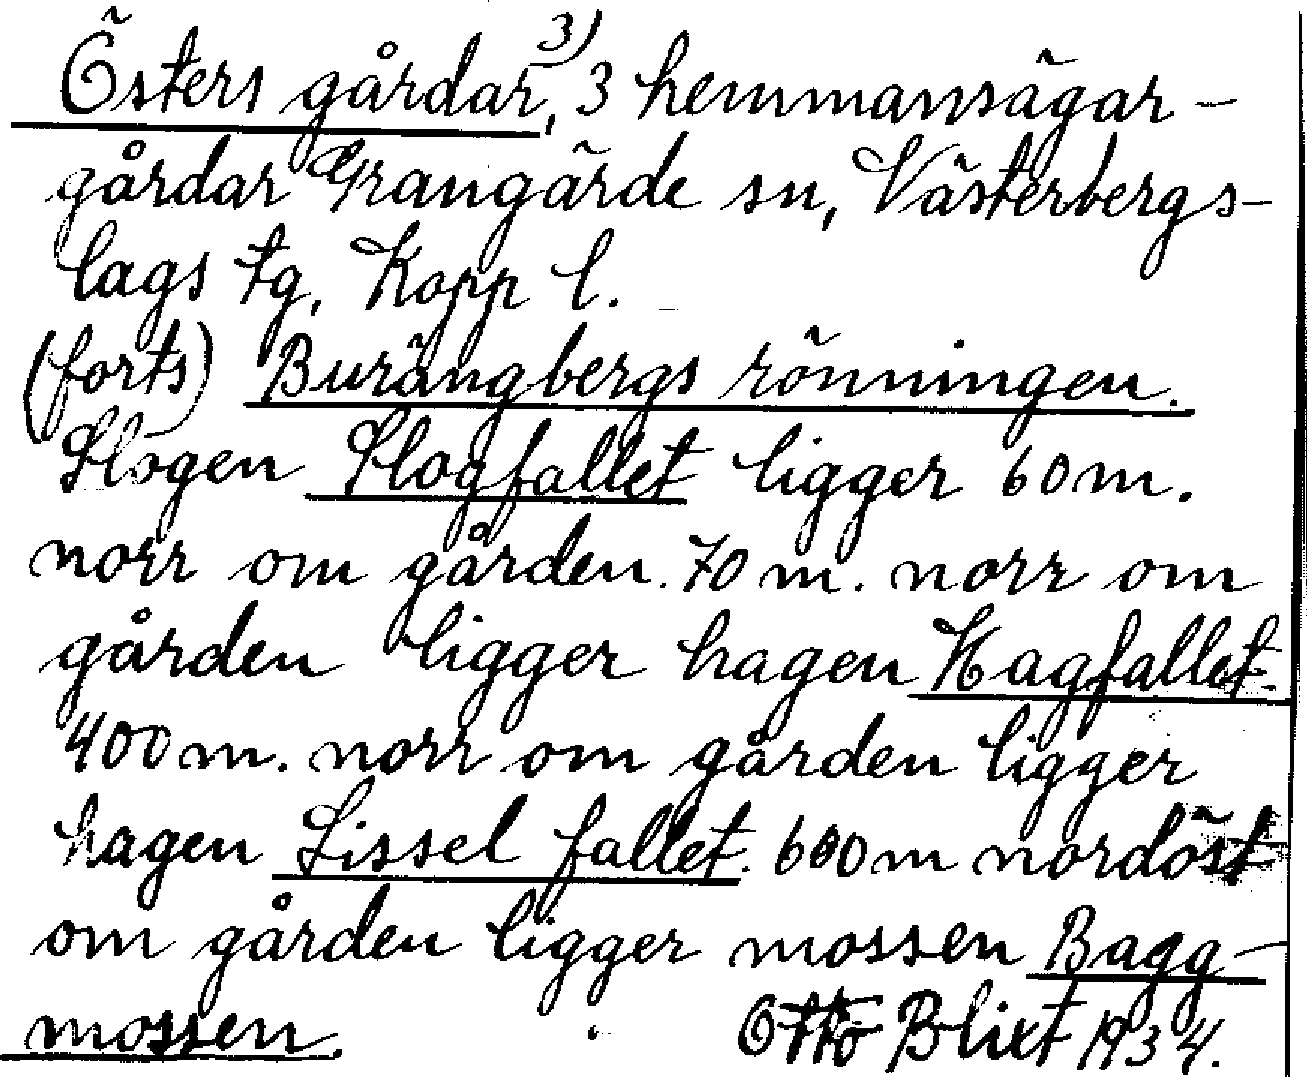 Östers gårdar,3) 3 hemmansägar-
gårdar Grangärde sn, Västerbergs-
lags tg, Kopp l.
(forts) Burängbergs rönningen.
Slogen Slogfallet ligger 60 m.
norr om gården. 70 m. norr om
gården ligger hagen Hagfallet.
400 m. norr om gården ligger
hagen Lissel fallet. 600 m nordöst
om gården ligger mossen Bagg-
mossen. Otto Blixt 1934.